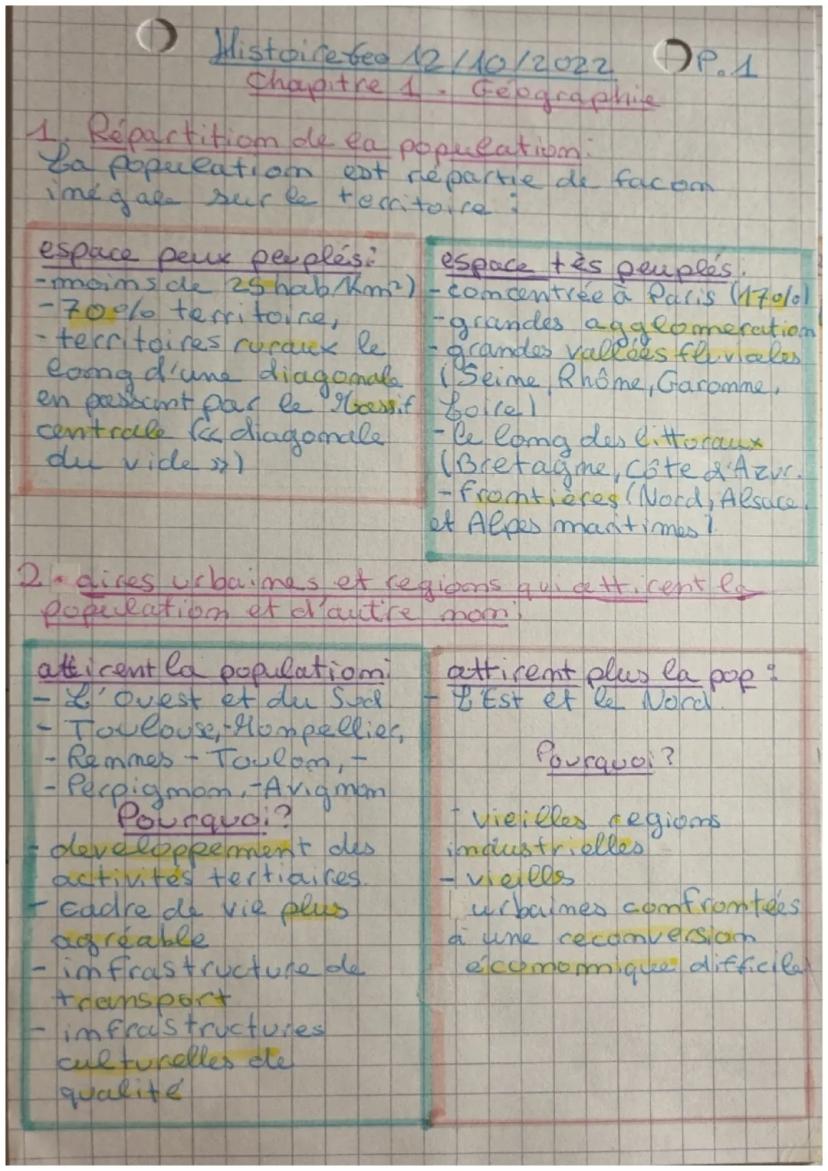 Histoire Geo 12/10/2022 P.1
Chapitre 1. Géographie
1. Répartition de la population:
La population est répartie de facon
inégale sur le territoire :
espace peux peuplés:
-moins de 25 hab/km²)
-70% territoire,
- territoires ruraux le
long d'une diagonale
en passant par le Massif
centrale (« diagonale
du vide »)
espace tès peuplés.
-concentrée à Paris (17%)
-grandes agglomeration
-grandes vallées fluviales
(Seine, Rhône, Garonne,
Loire)
- le long des littoraux
(Bretagne, Côte d'Azur.
- frontières (Nord, Alsace,
et Alpes maritimes)
2. aires urbaines et regions qui attirent la
population et d'autre non:
attirent la population:
- L'Ouest et du Sud
- Toulouse,-Monpellier,
- Rennes - Toulon, -
- Perpignon,-Avignon
Pourquoi?
- developpement des
activités tertiaires.
- cadre de vie plus
agréable
- infrastructure de
transport
- infrastructures
culturelles de
qualité
attirent plus la pop :
- L'Est et le Nord
Pourquoi?
- vieilles regions
industrielles
- vieilles
urbaines confrontées
à une reconversion
économique difficile